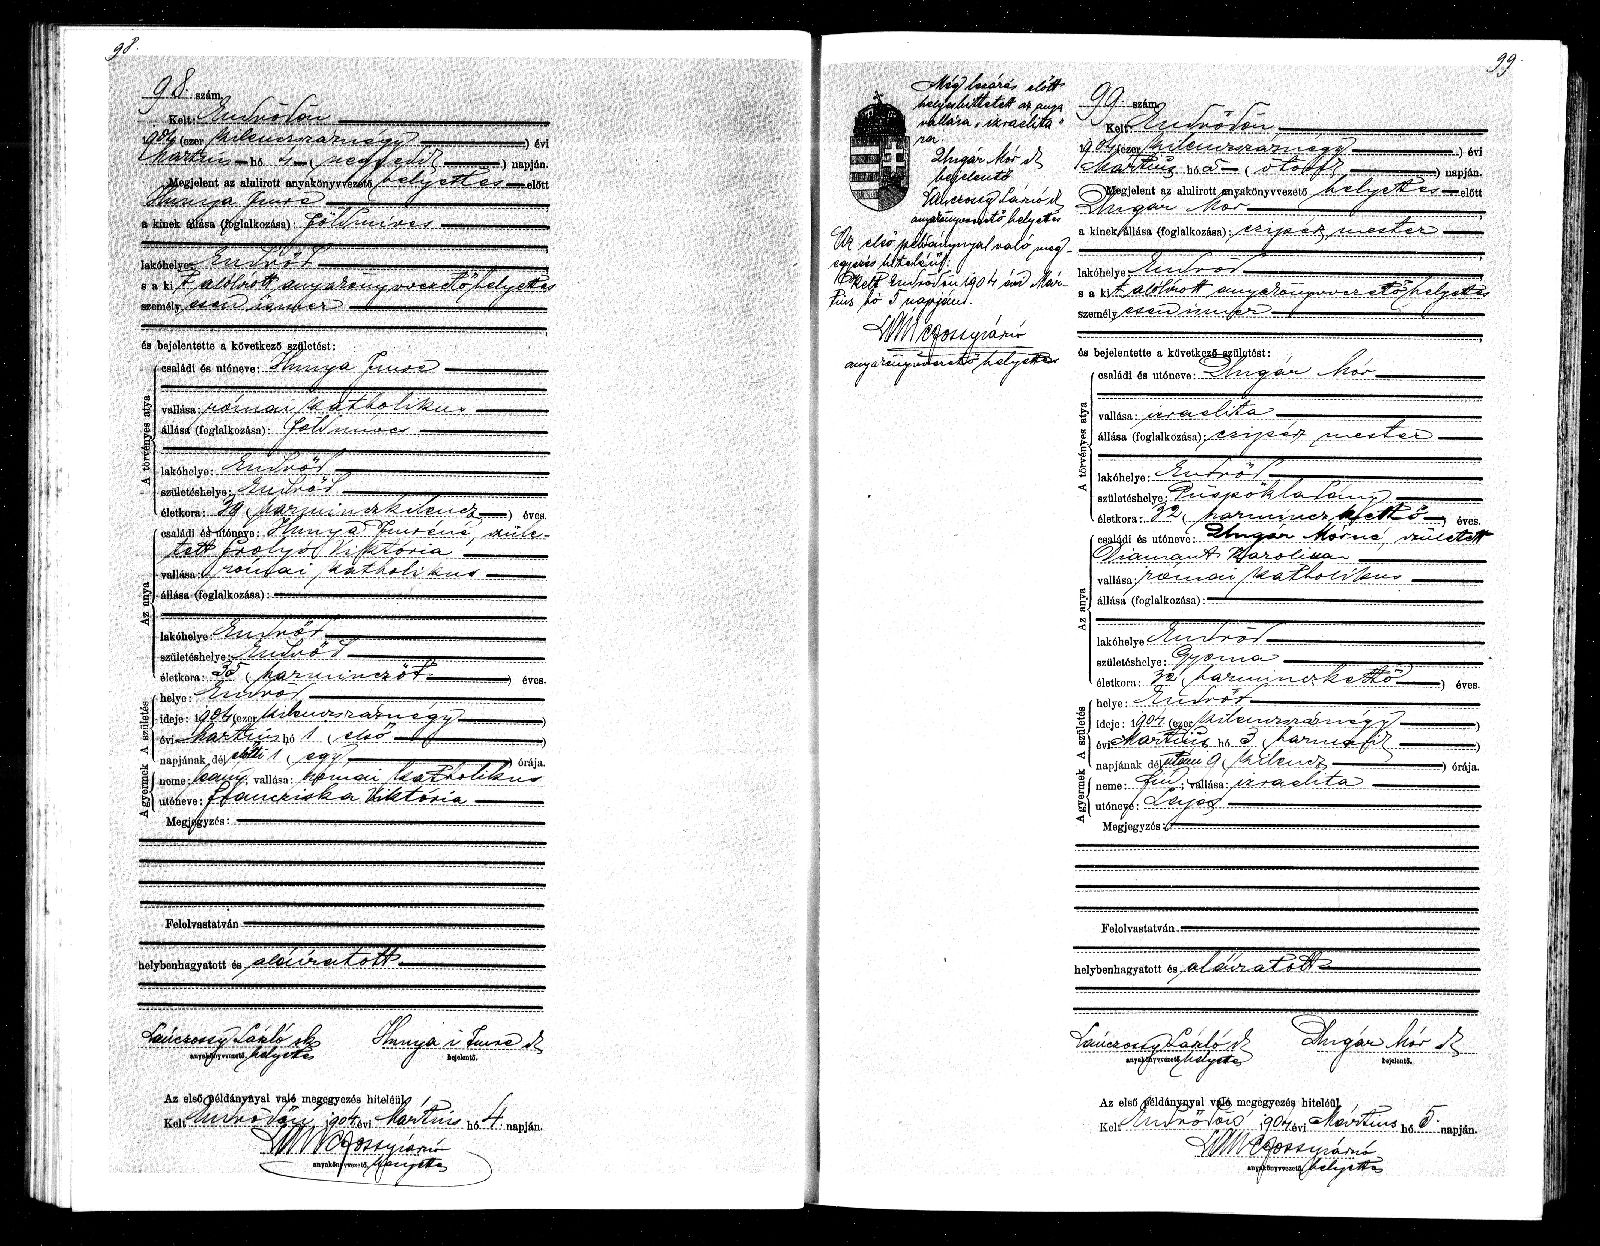 98.
98. szám.
Kelt: Endrődön
1904 (ezer kilenczszáznégy) évi
Martius hó 4 (negyedik) napján.
Megjelent az alulirott anyakönyvvezető helyettes előtt
Hunya Imre
a kinek állása (foglalkozása): földmives
lakóhelye: Endrőd
s a kit alólirott anyakönyvvezető helyettes
személyesen ismer
és bejelentette a következő születést:
A törvényes atya
családi és utóneve: Hunya Imre
vallása: római katholikus
állása (foglalkozása): földmives
lakóhelye: Endrőd
születéshelye: Endrőd
életkora: 39 (harminczkilencz) éves.
Az anya
családi és utóneve: Hunya Imréné, szüle-
tett Viktória
vallása: római katholikus
állása (foglalkozása):
lakóhelye: Endrőd
születéshelye: Endrőd
életkora: 35 (harminczöt) éves.
A születés
helye: Endrőd
ideje: 1904 (ezer kilenczszáznégy)
évi Martius hó 1 (első)
napjának délelőtti 1 (egy) órája.
A gyermek
neme: leány; vallása: római katholikus
utóneve: Francziska Viktória
Megjegyzés:
Felolvastatván
helybenhagyatott és aláiratott
Lánczossy László sk Hunya i Imre sk
anyakönyvvezető helyettes bejelentő.
Az első példánynyal való megegyezés hiteléül.
Kelt Endrődön, 1904 évi Mártius hó 4 napján.
anyakönyvvezető helyettes
99.
Még lezárás előtt
helyesbittetett az anya
vallása „izraelita"
ra
Ungár Mór sk
bejelentő
Lánczossy László sk
anyakönyvvezető helyettes
Az első példánynyal való meg-
egyezés hiteléül.
Kelt Endrődön 1904 évi Már-
tius hó 5 napján.
anyakönyvvezető helyettes
99. szám.
Kelt: Endrődön
1904 (ezer kilenczszáznégy) évi
Martius hó 5 (ötödik) napján.
Megjelent az alulirott anyakönyvvezető helyettes előtt
Ungár Mor
a kinek állása (foglalkozása): czipész mester
lakóhelye: Endrőd
s a kit alólirott anyakönyvvezető helyettes
személyesen ismer
és bejelentette a következő születést:
A törvényes atya
családi és utóneve: Ungár Mor
vallása: izraelita
állása (foglalkozása): czipész mester
lakóhelye: Endrőd
születéshelye: Püspökladány
életkora: 32 (harminczkettő) éves.
Az anya
családi és utóneve: Ungár Mórné, született
Diamant Karolina
vallása: római katholikus
állása (foglalkozása):
lakóhelye: Endrőd
születéshelye: Gyoma
életkora: 32 (harminczkettő) éves.
A születés
helye: Endrőd
ideje: 1904 (ezer kilenczszáznégy)
évi Martius hó 3 (harmadik)
napjának délutáni 9 (kilencz) órája.
A gyermek
neme: fiu; vallása: izraelita
utóneve: Lajos
Megjegyzés:
Felolvastatván
helybenhagyatott és aláiratott
Lánczossy László sk Ungár Mór sk
anyakönyvvezető helyettes bejelentő.
Az első példánynyal való megegyezés hiteléül.
Kelt Endrődön, 1904 évi Mártius hó 5 napján.
anyakönyvvezető helyettes